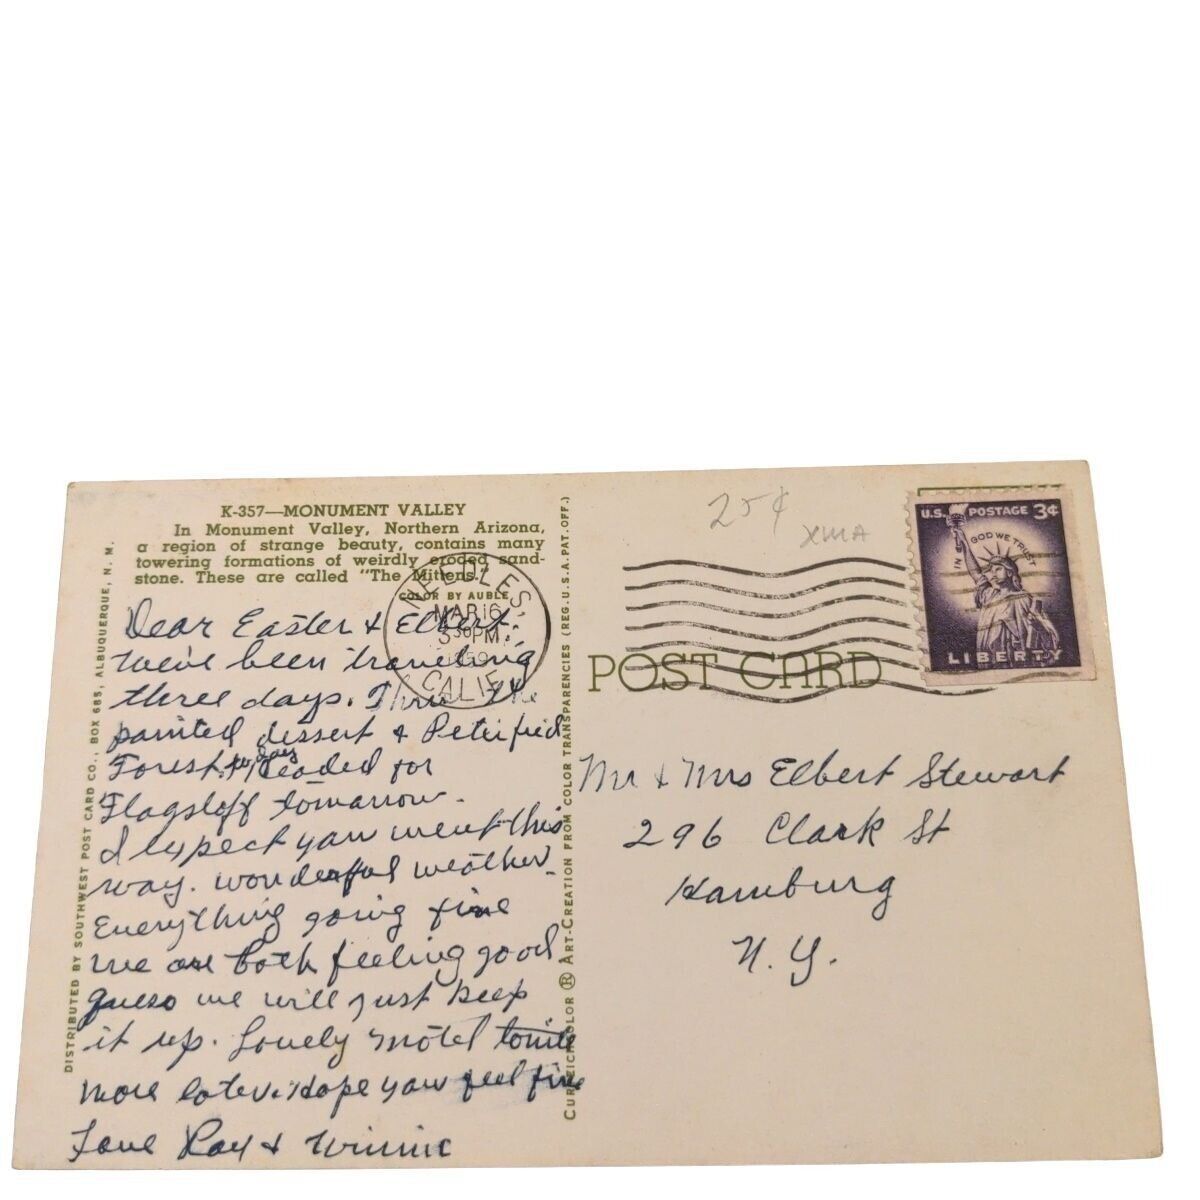 K-357—MONUMENT VALLEY
In Monument Valley, Northern Arizona,
a region of strange beauty, contains many
towering formations of weirdly eroded sand-
stone. These are called "The Mittens."
COLOR BY AUBLE
DISTRIBUTED BY SOUTHWEST POST CARD CO., BOX 685, ALBUQUERQUE, N. M.
NEEDLES,
MAR 16
3 30 PM
1959
CALIF.
Dear Easter & Elbert.
We've been traveling
three days. Thru the
painted dessert & Petrified
Forest today Headed for
Flagstoff tomarrow.
I expect you went this
way. wonderful weather.
Everything going fine
we are both feeling good
guess we will just keep
it up. Lovely motel tonite
more later. Hope you feel fine
Love Ray & Winnie
CURTEICHCOLOR ® ART-CREATION FROM COLOR TRANSPARENCIES (REG. U.S.A. PAT. OFF.)
25¢
XMA
U.S. POSTAGE 3¢
IN GOD WE TRUST
LIBERTY
POST CARD
Mr & Mrs Elbert Stewart
296 Clark St
Hamburg
N. Y.